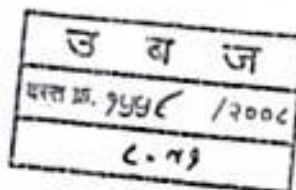 उ ब ज
दस्त क्र. १५५८ /२००८
८-५१